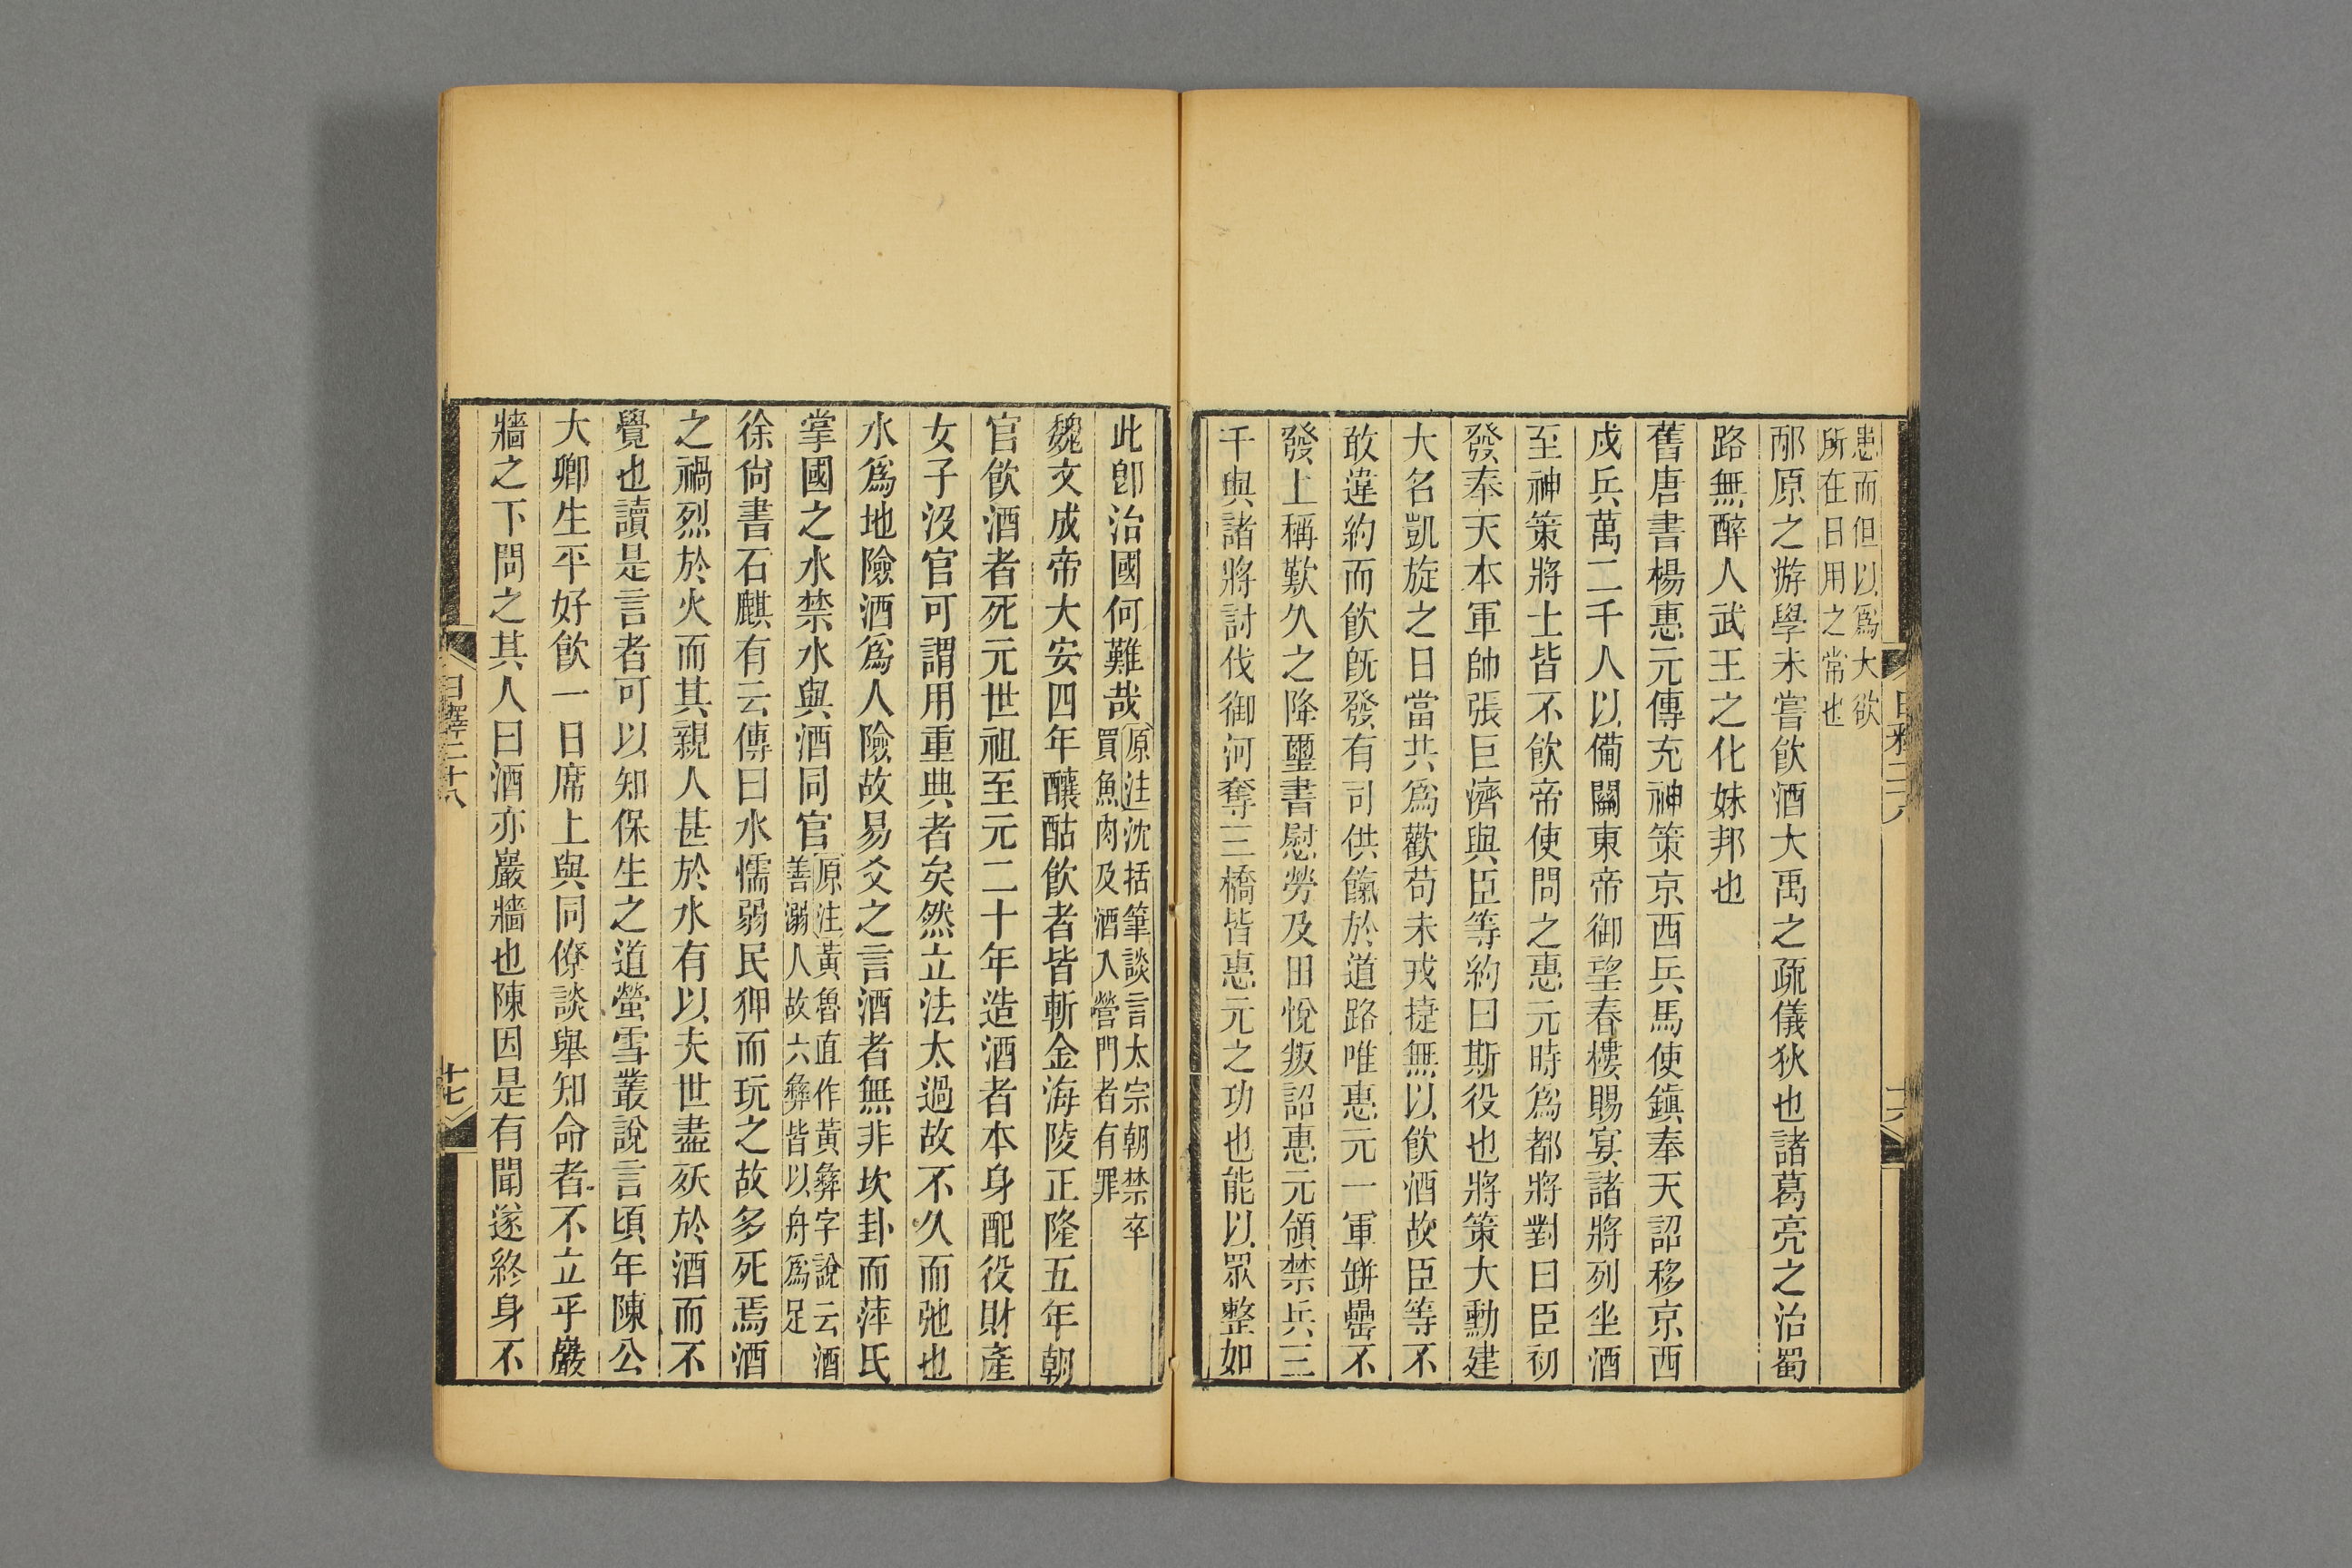 患而但以爲大欲
所在日用之常也
邴原之游學未嘗飲酒大禹之疏儀狄也諸葛亮之治蜀
路無醉人武王之化妹邦也
舊唐書楊惠元傳充神策京西兵馬使鎭奉天詔移京西
戍兵萬二千人以備關東帝御望春樓賜宴諸將列坐酒
至神策將士皆不飲帝使問之惠元時爲都將對曰臣初
發奉天本軍帥張巨濟與臣等約曰斯役也將策大勳建
大名凱旋之日當共爲歡苟未戎捷無以飲酒故臣等不
敢違約而飲旣發有司供餼於道路唯惠元一軍缾罍不
發上稱歎久之降璽書慰勞及田悅叛詔惠元領禁兵三
千與諸將討伐御河奪三橋皆惠元之功也能以眾整如
此卽治國何難哉原注沈括筆談言太宗朝禁卒
買魚肉及酒入營門者有罪
魏文成帝大安四年釀酤飲者皆斬金海陵正隆五年朝
官飲酒者死元世祖至元二十年造酒者本身配役財產
女子沒官可謂用重典者矣然立法太過故不久而弛也
水爲地險酒爲人險故易爻之言酒者無非坎卦而萍氏
掌國之水禁水與酒同官原注黃魯直作黃彝字說云酒
善溺人故六彝皆以舟爲足
徐尙書石麒有云傳曰水懦弱民狎而玩之故多死焉酒
之禍烈於火而其親人甚於水有以夫世盡殀於酒而不
覺也讀是言者可以知保生之道螢雪叢說言頃年陳公
大卿生平好飲一日席上與同僚談舉知命者不立乎巖
牆之下問之其人曰酒亦巖牆也陳因是有聞遂終身不
日釋二十八
十七
十六